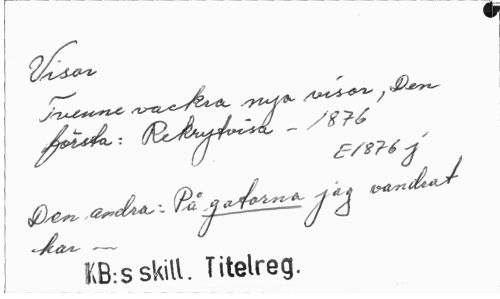 Visor
Tvenne vackra nya visor, Den
första: Rekrytvisa - 1876
E1876 j
Den andra: På gatorna jag vandrat
har —
KB:s skill. Titelreg.